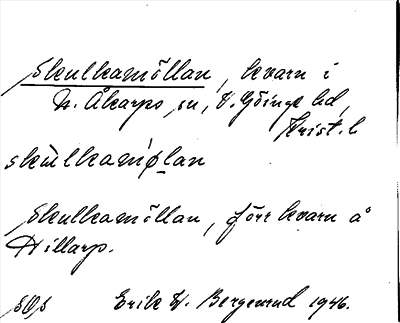 Skulkamöllan, kvarn i
N. Åkarps sn, V. Göinge hd,
Krist. l
skùlkamø̀lan
Skulkamöllan, förr kvarn å
Hillarp.
Erik W. Bergenrud 1946.